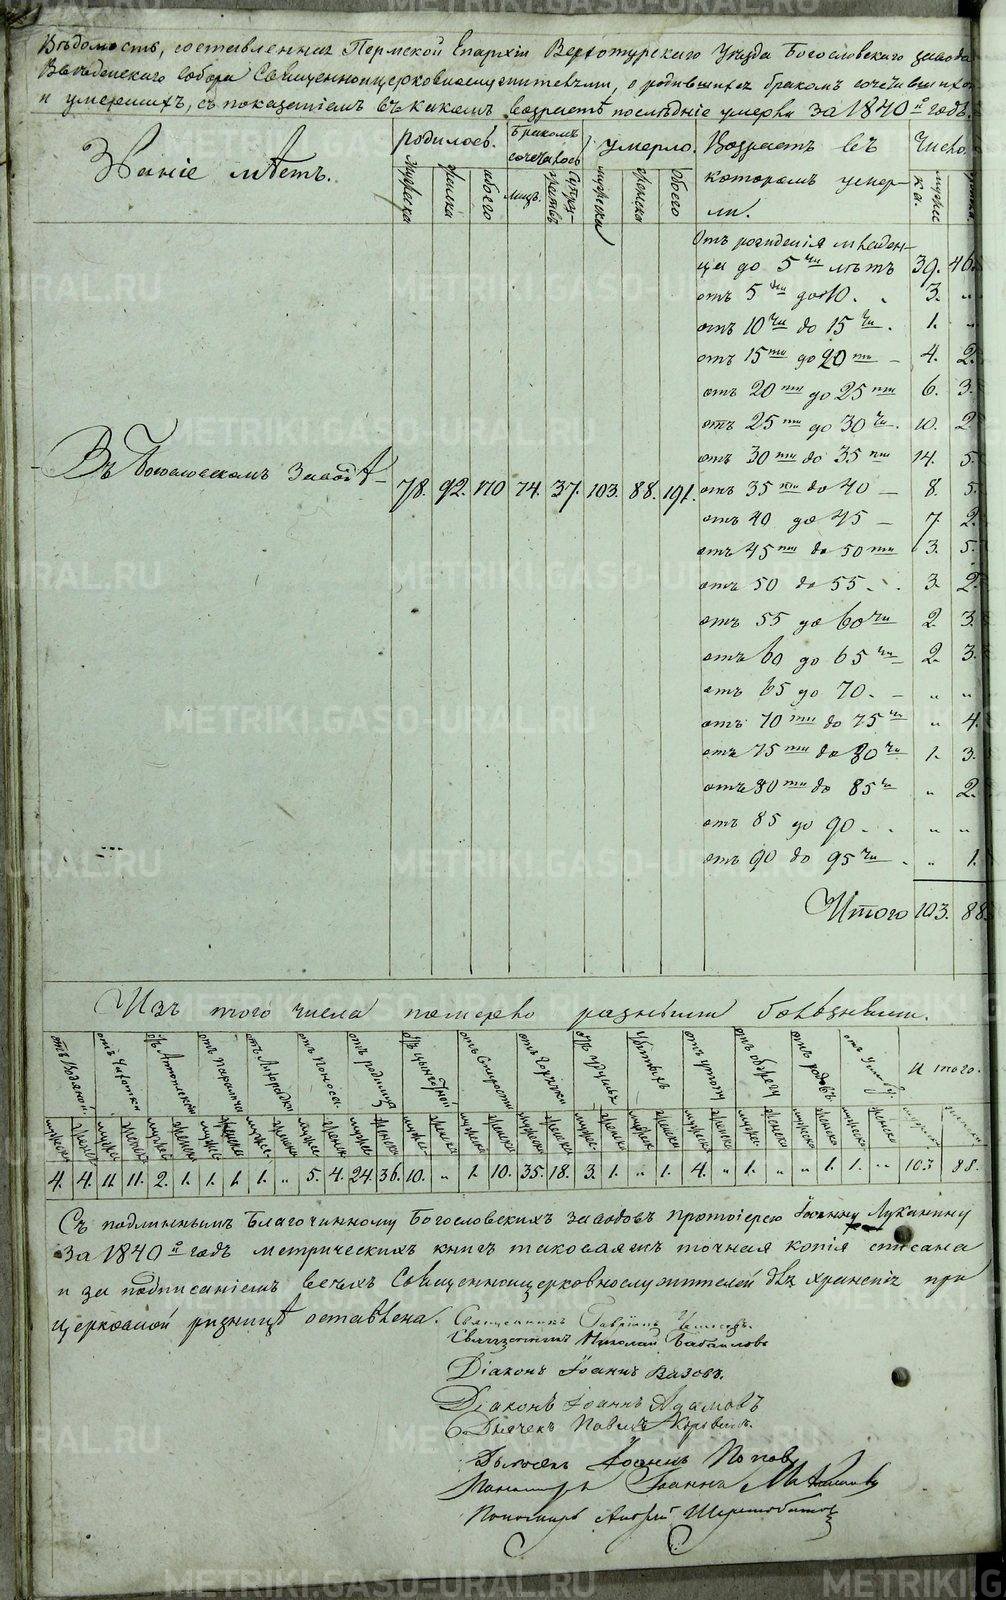 Вѣдомость, составленная Пермской Епархіи Верхотурскаго Уѣзда Богословскаго завода
Введенскаго собора Священноцерковнослужителями, о родившихся бракомъ сочетавшихся
и умершихъ, съ показаніемъ въ какомъ возрастѣ послѣдніе умерли за 1840й годъ.
Званіе мѣстъ.
родилось. бракомъ сочетались умерло. Возрастъ въ которомъ умерли. Число.
мужеска женска обоего лицъ. супружествъ мужеска женска обоего мужеска.
Въ Богословскомъ Заводѣ 78. 92. 170 74. 37. 103. 88. 191.
Отъ рожденія младен-
ца до 5ти лѣтъ 39. 46.
отъ 5ти до 10. . 3. „
отъ 10ти до 15ти. 1. „
отъ 15ти до 20ти — 4. 2.
отъ 20ти до 25ти 6. 3.
отъ 25ти до 30ти. 10. 2
отъ 30ти до 35ти 14. 5.
отъ 35ти до 40 — 8. 5.
отъ 40 до 45 — 7. 2.
отъ 45ти до 50ти 3. 5.
отъ 50 до 55. . 3. 2.
отъ 55 до 60ти 2. 3.
отъ 60 до 65ти 2. 3.
отъ 65 до 70. — „ „
отъ 70ти до 75ти „ 4.
отъ 75ти до 80ти 1. 3.
отъ 80ти до 85ти „ 2.
отъ 85 до 90. . „ „
отъ 90 до 95ти . „ 1.
Итого 103. 88
Изъ того числа померло разными болѣзнями.
отъ Водяной. отъ Чахотки отъ Апоплексіи отъ Паралича отъ Лихорадки отъ Поноса. отъ родимца отъ цынготной отъ Старости отъ Горячки отъ Грыжи Убитыхъ отъ утопу отъ обжогу отъ родовъ итого.
мужеска женска мужеска женска мужеска женска мужеска женска мужеска женска мужеска женска мужеска женска мужеска женска мужеска женска мужеска женска мужеска женска мужеска женска мужеска женска мужеска женска мужеска женска мужеска женска мужеска женска
4. 4. 11. 11. 2. 1. 1. 1. 1. „ 5. 4. 24. 36. 10. „ 1. 10. 35. 18. 3. 1. „ 1. 4. „ 1. „ „ 1. 1. „ 103 88.
Съ подлинныхъ Благочинному Богословскихъ заводовъ протоіерею Іоанну Луканину
за 1840й годъ метрическихъ книгъ таковаямъ точная копія списана
и за подписаніемъ всѣхъ Священноцерковнослужителей для храненія при
церковной ризницѣ оставлена.
Священникъ Гавріилъ
Священникъ Николай
Діаконъ Іоаннъ Вазовъ.
Діаконъ Іоаннъ Адамовъ
Дьячекъ Павелъ
Дьячекъ Іоаннъ Поповъ
Пономарь Іоаннъ
Пономарь Андрей
METRIKI.GASO-URAL.RU